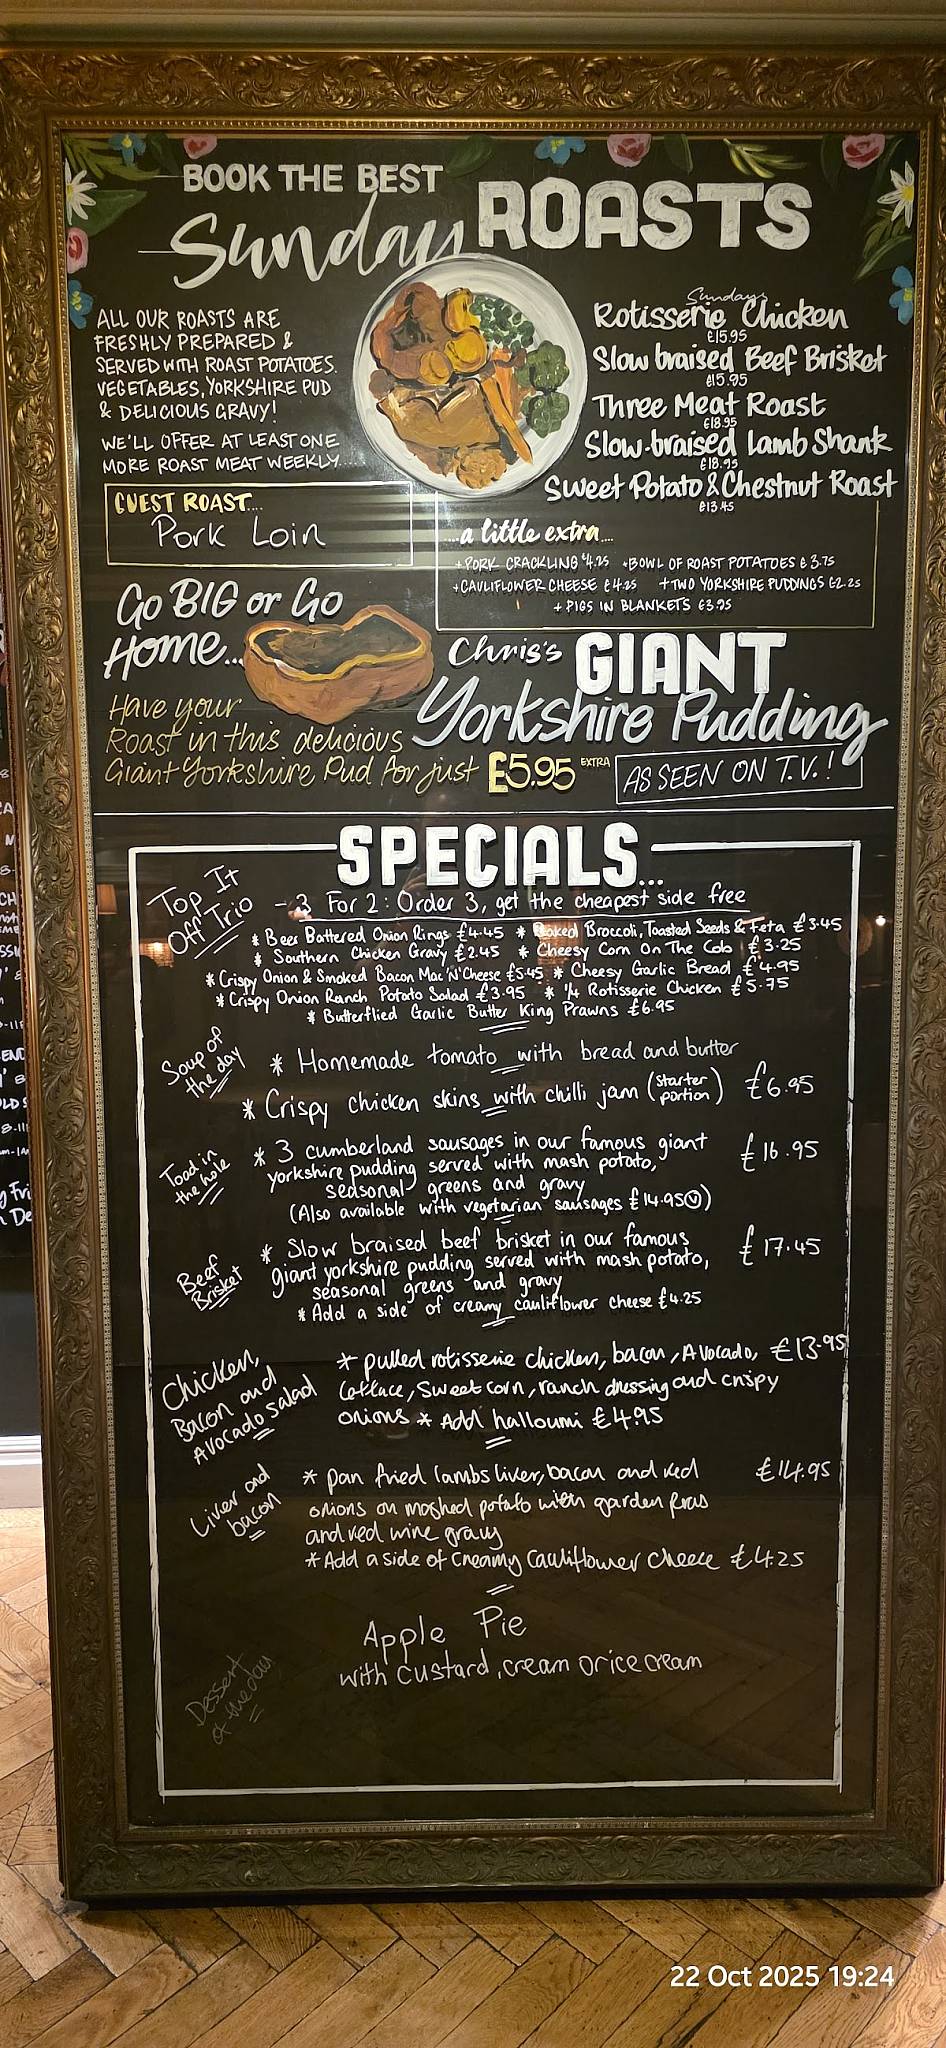 BOOK THE BEST
Sunday ROASTS
ALL OUR ROASTS ARE
FRESHLY PREPARED &
SERVED WITH ROAST POTATOES.
VEGETABLES, YORKSHIRE PUD
& DELICIOUS GRAVY!
WE'LL OFFER AT LEAST ONE
MORE ROAST MEAT WEEKLY...
GUEST ROAST....
Pork Loin
Sundays
Rotisserie Chicken
£15.95
Slow braised Beef Brisket
£15.95
Three Meat Roast
£18.95
Slow-braised Lamb Shank
£18.95
Sweet Potato & Chestnut Roast
£13.45
...a little extra....
+ PORK CRACKLING £4.25 + BOWL OF ROAST POTATOES £3.75
+ CAULIFLOWER CHEESE £4.25 + TWO YORKSHIRE PUDDINGS £2.25
+ PIGS IN BLANKETS £3.95
Go BIG or Go
Home...
Have your
Roast in this delicious
Giant Yorkshire Pud for just £5.95 EXTRA
Chris's GIANT
Yorkshire Pudding
AS SEEN ON T.V.!
SPECIALS...
Top It
Off Trio
- 3 For 2: Order 3, get the cheapest side free
* Beer Battered Onion Rings £4.45 * Baked Broccoli, Toasted Seeds & Feta £3.45
* Southern Chicken Gravy £2.45 * Cheesy Corn On The Cob £3.25
* Crispy Onion & Smoked Bacon Mac 'N' Cheese £5.45 * Cheesy Garlic Bread £4.95
* Crispy Onion Ranch Potato Salad £3.95 * 1/4 Rotisserie Chicken £5.75
* Butterflied Garlic Butter King Prawns £6.95
Soup of
the day
* Homemade tomato with bread and butter
* Crispy chicken skins with chilli jam (starter portion) £6.95
Toad in
the hole
* 3 cumberland sausages in our famous giant £16.95
yorkshire pudding served with mash potato,
seasonal greens and gravy
(Also available with vegetarian sausages £14.95 Ⓥ)
Beef
Brisket
* Slow braised beef brisket in our famous £17.45
giant yorkshire pudding served with mash potato,
seasonal greens and gravy
* Add a side of creamy cauliflower cheese £4.25
Chicken,
Bacon and
Avocado salad
* pulled rotisserie chicken, bacon, Avocado, £13.95
lettuce, sweetcorn, ranch dressing and crispy
onions * Add halloumi £4.95
Liver and
bacon
* pan fried lambs liver, bacon and red £14.95
onions on mashed potato with garden peas
and red wine gravy
* Add a side of creamy cauliflower cheese £4.25
Dessert
of the day
Apple Pie
with custard, cream or ice cream
22 Oct 2025 19:24